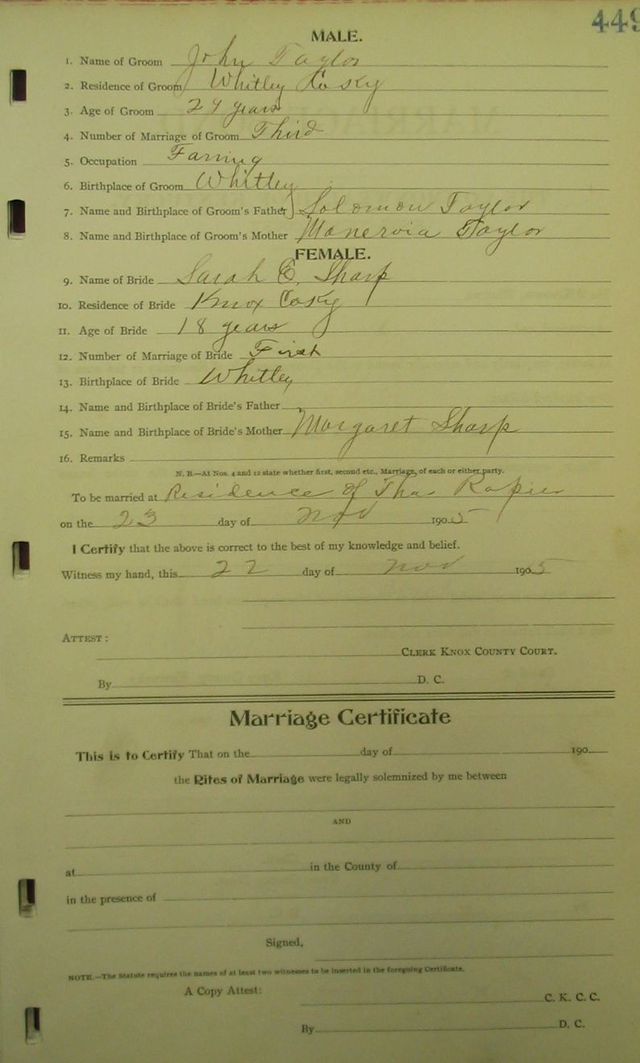 449
MALE.
1. Name of Groom John Taylor
2. Residence of Groom Whitley Co Ky
3. Age of Groom 24 years
4. Number of Marriage of Groom Third
5. Occupation Faming
6. Birthplace of Groom Whitley
7. Name and Birthplace of Groom's Father Solomon Taylor
8. Name and Birthplace of Groom's Mother Manervia Taylor
FEMALE.
9. Name of Bride Sarah E. Sharp
10. Residence of Bride Knox Co Ky
11. Age of Bride 18 years
12. Number of Marriage of Bride First
13. Birthplace of Bride Whitley
14. Name and Birthplace of Bride's Father
15. Name and Birthplace of Bride's Mother Margaret Sharp
16. Remarks
N. B.—At Nos. 4 and 12 state whether first, second etc., Marriage, of each or either party.
To be married at Residence of Thos Rapier
on the 23 day of Nov 1905
I Certify that the above is correct to the best of my knowledge and belief.
Witness my hand, this 22 day of Nov 1905
ATTEST:
CLERK KNOX COUNTY COURT.
By D. C.
Marriage Certificate
This is to Certify That on the day of 190
the Rites of Marriage were legally solemnized by me between
AND
at in the County of
in the presence of
Signed,
NOTE.—The Statute requires the names of at least two witnesses to be inserted in the foregoing Certificate.
A Copy Attest:
C. K. C. C.
By D. C.